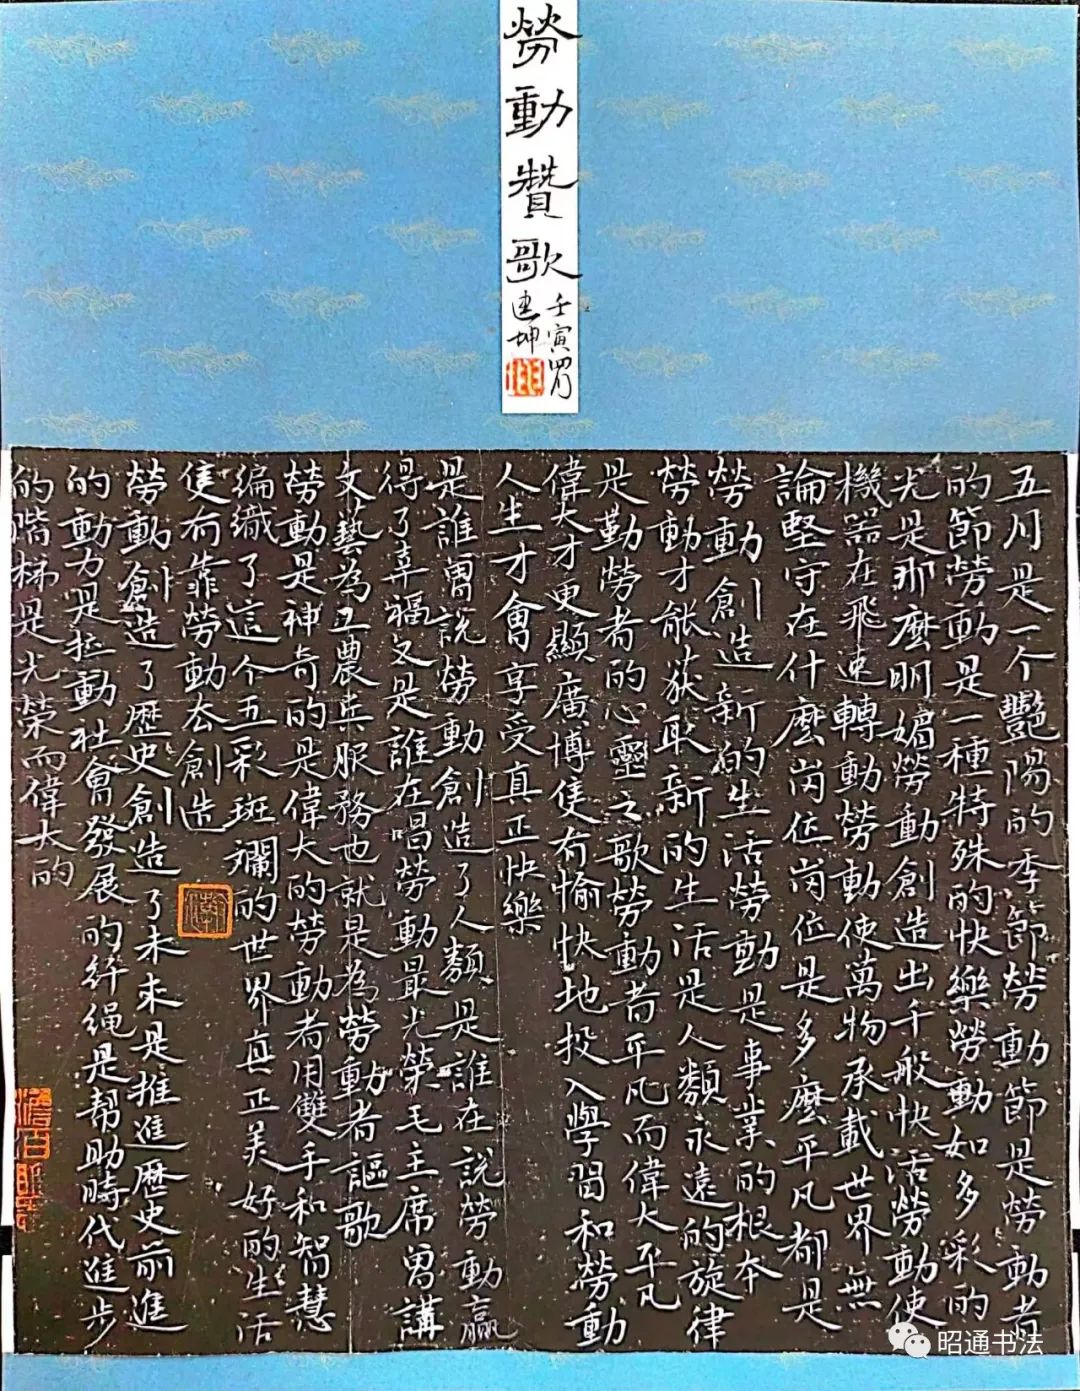 勞動贊歌
壬寅
建坤
五月是一个艷陽的季節勞動節是勞動者
的節勞動是一種特殊的快樂勞動如多彩的
光是那麼明媚勞動創造出千般快活勞動使
機器在飛速轉動勞動使萬物承載世界無
論堅守在什麼崗位崗位是多麼平凡都是
勞動創造新的生活勞動是事業的根本
勞動才能获取新的生活是人類永遠的旋律
是勤勞者的心靈之歌勞動者平凡而偉大平凡
偉大才更顯廣博隻有愉快地投入學習和勞動
人生才會享受真正快樂
是誰曾説勞動創造了人類是誰在説勞動贏
得了幸福又是誰在唱勞動最光榮毛主席曾講
文藝為工農兵服務也就是為勞動者謳歌
勞動是神奇的是偉大的勞動者用雙手和智慧
编織了這个五彩斑斕的世界真正美好的生活
隻有靠勞動去創造
勞動創造了歷史創造了未来是推進歷史前進
的動力是拉動社會發展的纤绳是幫助時代進步
的階梯是光榮而偉大的
昭通书法